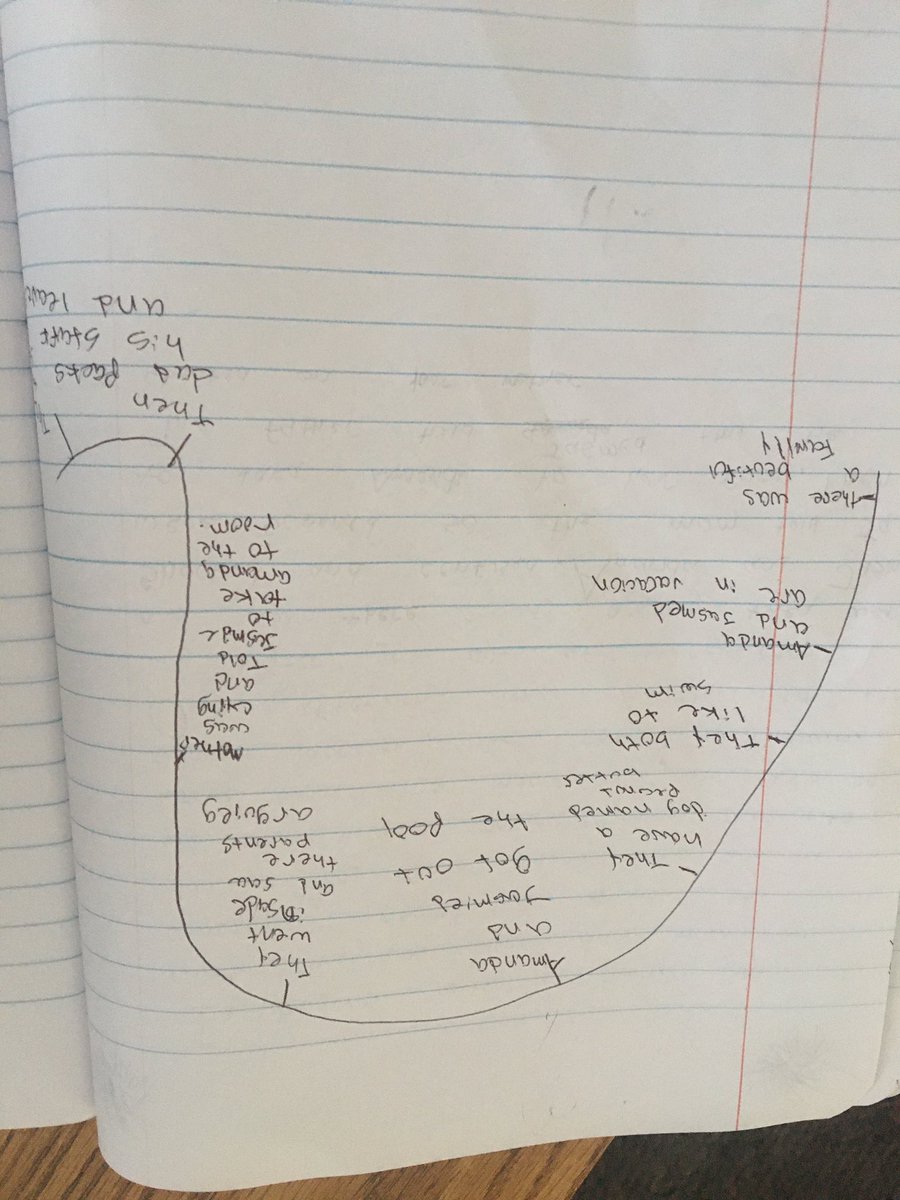 there was
a beutiful
family
Amanda
and Jasmed
are in vacacion
They both
like to
swim
They
have a
dog named
butter
Amanda
and
got out
the pool
They
went
inside
and saw
there
parents
arguieg
mother
was
and
Told
to
take
amanda
to the
room.
Then
dad packs
his stuff
and